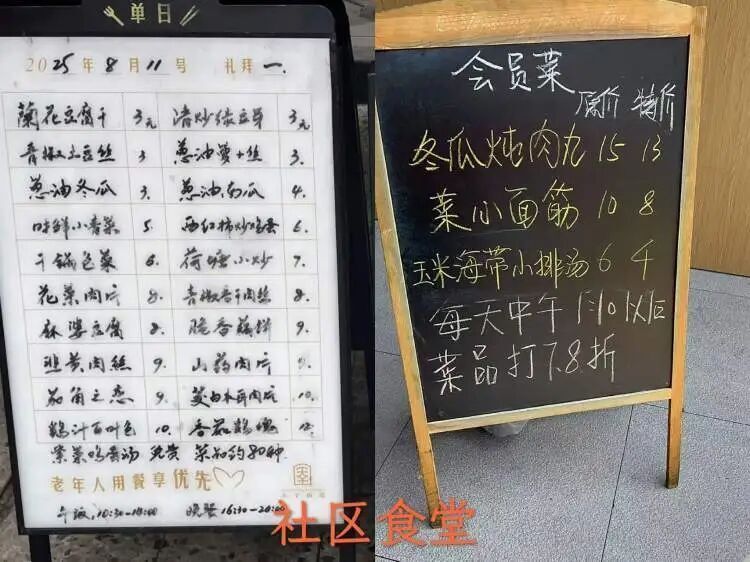 单日
2025年8月11号 礼拜一.
蘭花豆腐干 3元 清炒绿豆芽 3元
青椒土豆丝 3 葱油萝卜丝 3.
葱油冬瓜 3. 葱油南瓜 4.
味鲜小青菜 5. 西红柿炒鸡蛋 6.
干锅包菜 6. 荷塘小炒 7.
花菜肉片 8. 青椒香干肉丝 8.
麻婆豆腐 8. 脆香藕饼 9.
韭黄肉丝 9. 山药肉片 9.
茄角之恋 9. 茭白木耳肉片 10.
鸡汁百叶包 10. 香菇鸡块 12.
紫菜鸡蛋汤 免费 菜品约80种
老年人用餐享优先
午饭,10:30-14:00 晚餐 16:30-20:00
会员菜
原价 特价
冬瓜炖肉丸 15 13
菜心面筋 10 8
玉米海带小排汤 6 4
每天中午1:10以后
菜品打7.8折
社区食堂